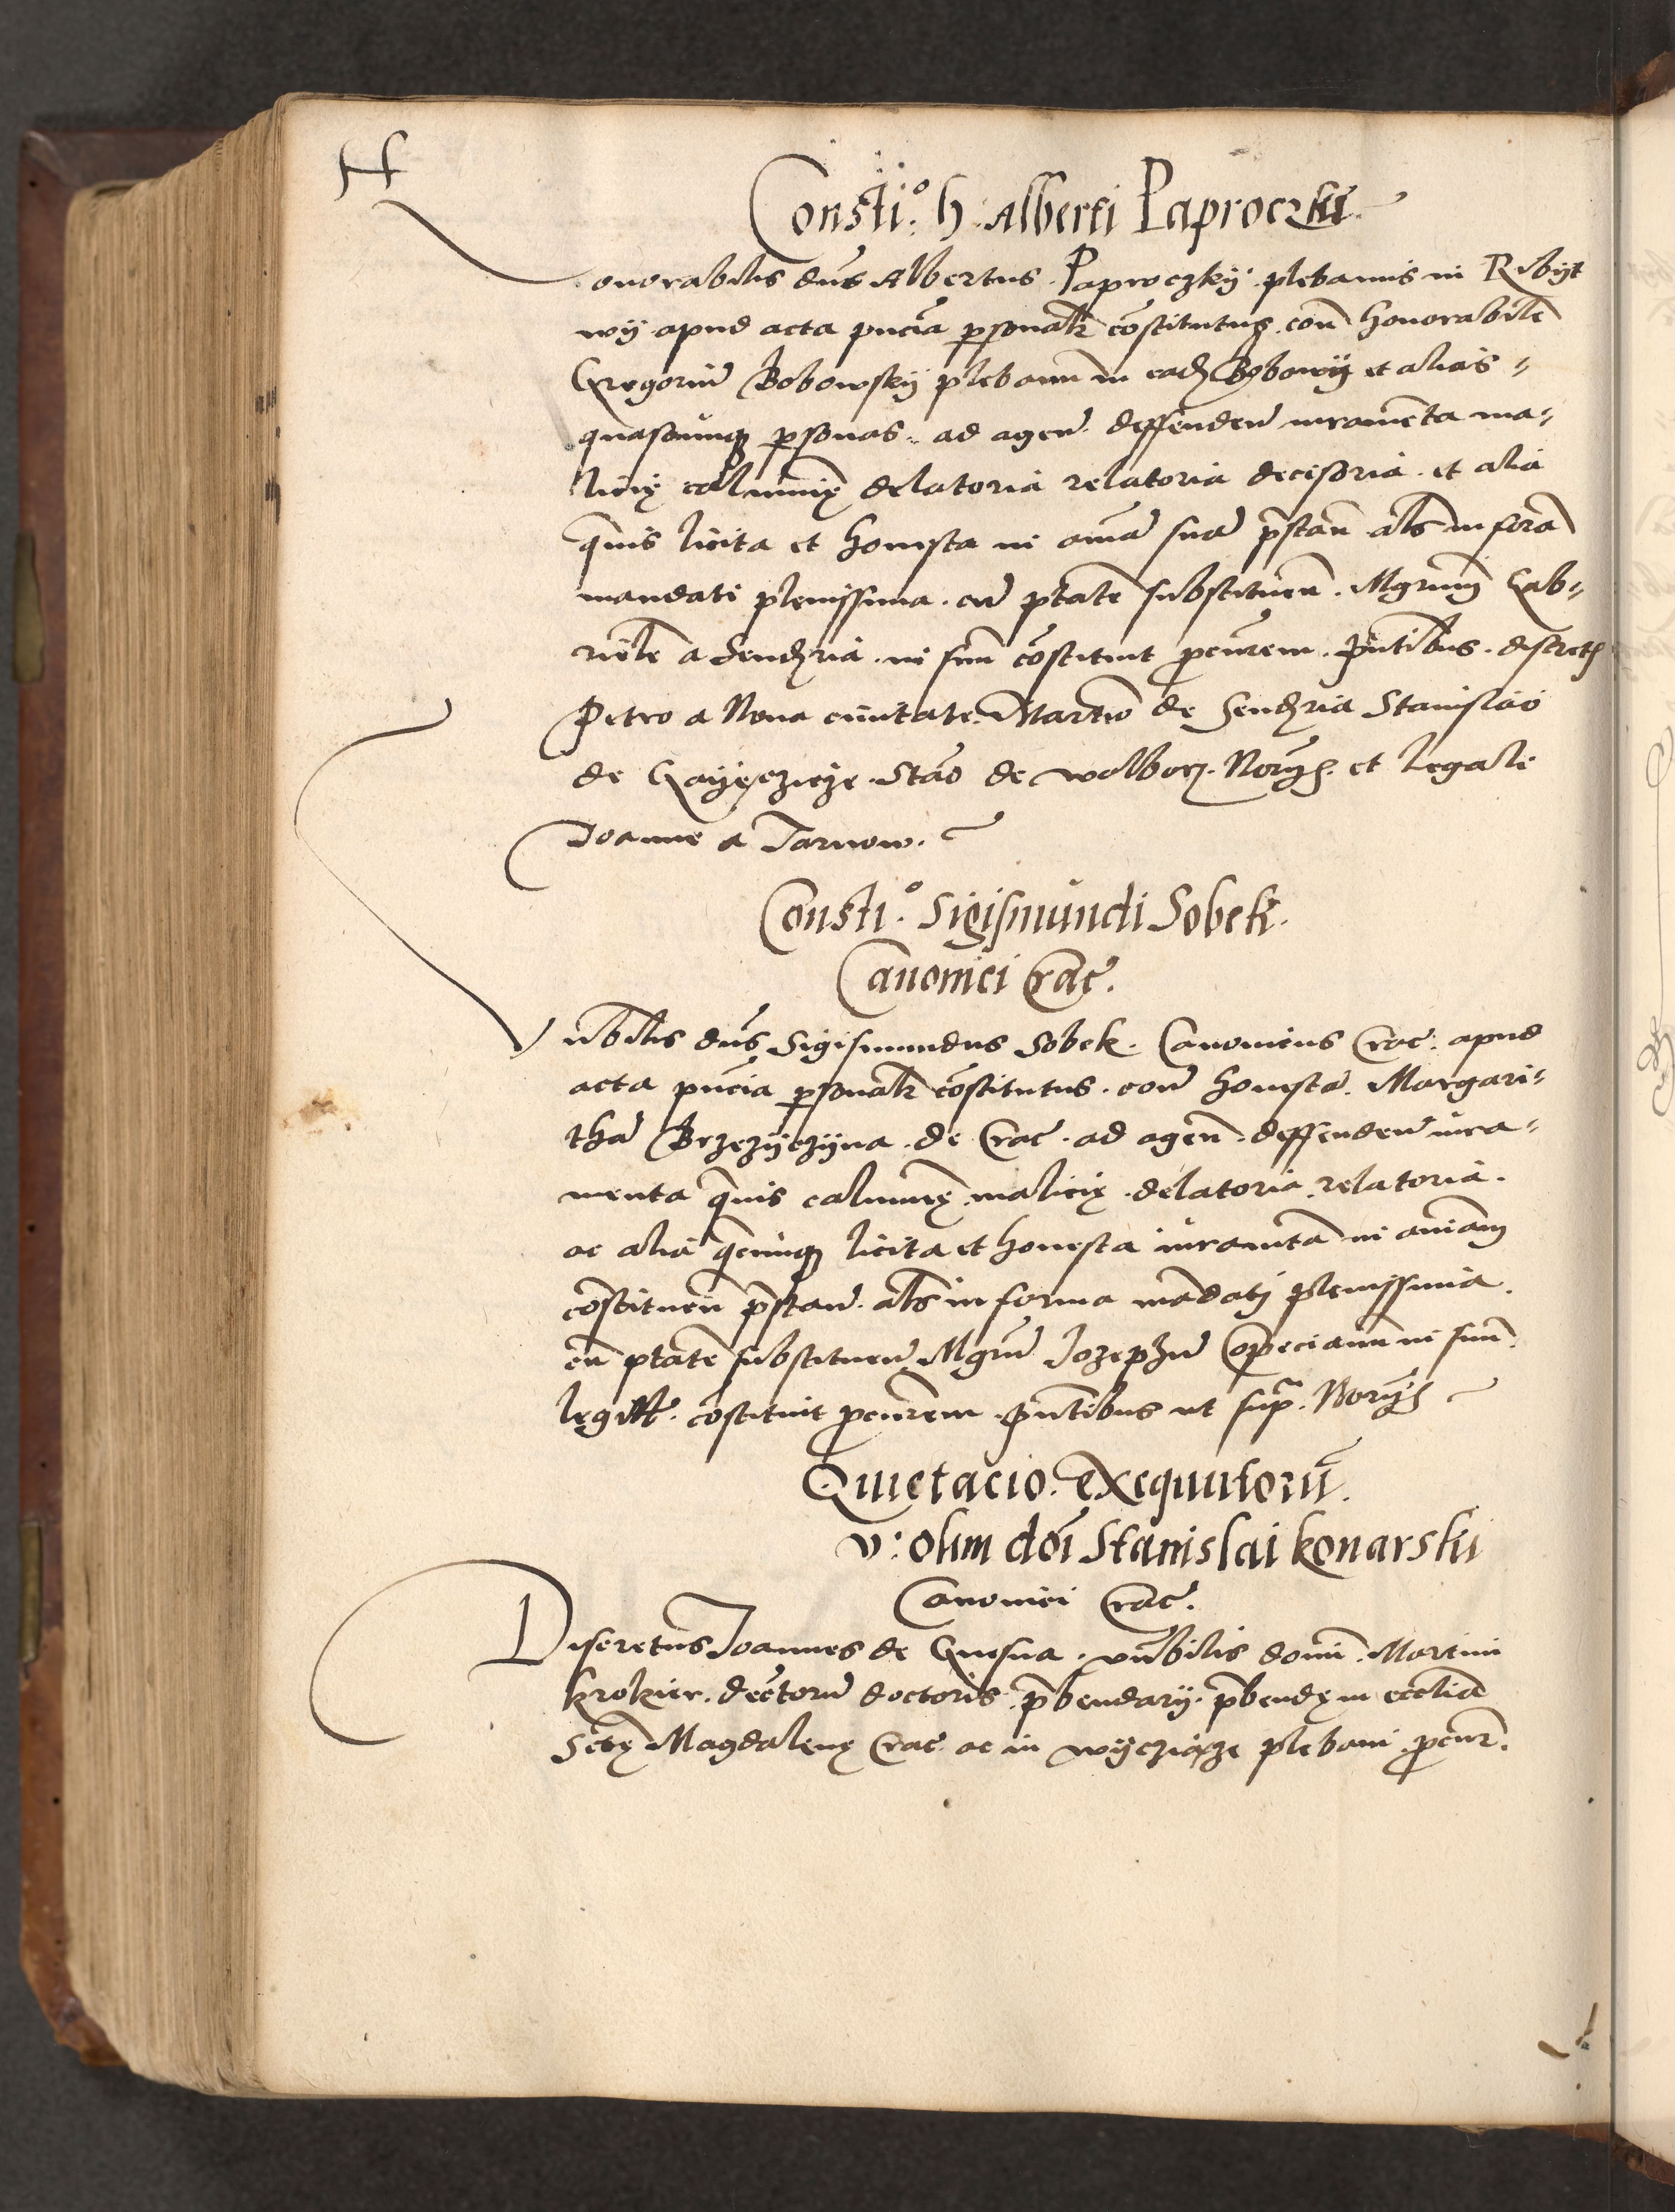 Consti.º h. Alberti Paproczki
Honorabilis dns Albertus Paproczkÿ plebanus in Ribÿt
wÿ apud acta pncia psonalr cōstitutus con honorabile
Gregoriu Bobowskÿ plebanu in eadz Bobowÿ et alias
quascunq psonas ad agen deffenden iuramēta ma
licię calumnię delatoria relatoria decisoria et alia
quis licita et honesta in aīa sua pstan als in fora
mandati plenissima cu ptate substituen Mgrum Gab
riele a Sendzria in suu cōstituit pcurem pntibus discretis
Petro a Noua ciuitate Martīo de Sendzria Stanislao
de Stāo de wolborz Norÿs et legale
Joanne a Tarnow.
Consti.º Sigismundi Sobek
Canonici Crac.
Vnbilis dns Sigismundus Sobek Canonicus Crac. apud
acta pncia psonalr cōstitutus con honesta Margari
tha Brzezÿczÿna de Crac ad agen deffenden iura
menta quis calumnię malicię delatoria relatoria
ac alia qcunq licita et honesta iuramta in aniam
cōstituen pstan als in forma mādati plenissima
cu ptate substituen Mgru Jozephu Opecianu in suu
legitt cōstituit pcurem pntibus ut supa Norÿs
Quietacio exequutoru
v: olim doī Stanislai Konarski
Canonici Crac.
Discretus Joannes de Gnesna vnbilis domi Martini
Krokier decretoru doctoris prbendarÿ prbendę in ecclia
Sctę Magdalenę Crac ac in wÿcziąze plebani pcur.